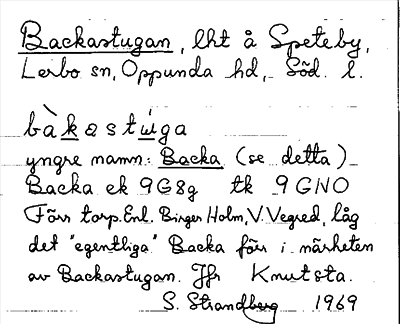 Backastugan, lht å Speteby,
Lerbo sn, Oppunda hd, Söd. l.
bàkastúga
yngre namn: Backa (se detta)
Backa ek 9G8g tk 9GNO
Förr torp. Enl. Birger Holm, V. Vegred, låg
det "egentliga" Backa förr i närheten
av Backastugan. Jfr Knutsta.
S. Strandberg 1969